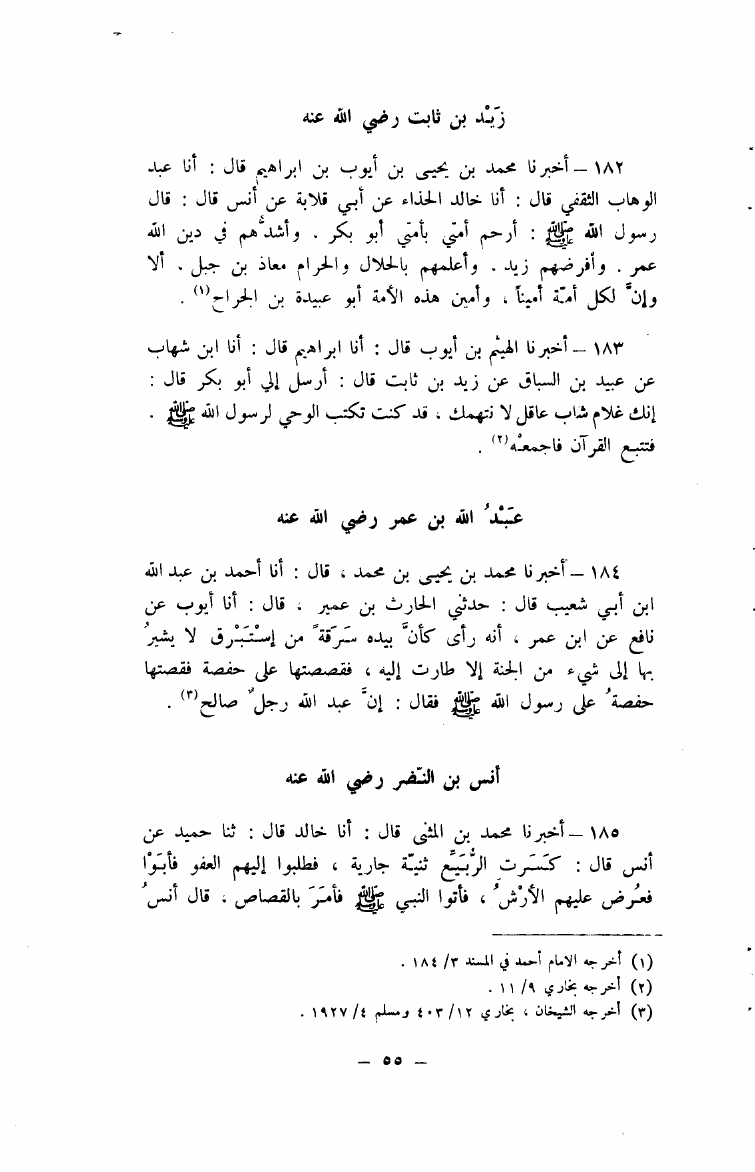 زَيْد بن ثابت رضي الله عنه
١٨٢ – أخبرنا محمد بن يحيى بن أيوب بن ابراهيم قال : أنا عبد
الوهاب الثقفي قال : أنا خالد الحذاء عن أبي قلابة عن أنس قال : قال
رسول الله ﷺ : أرحم أمتي بأمتي أبو بكر . وأشدُّهم في دين الله
عمر . وأفرضهم زيد . وأعلمهم بالحلال والحرام معاذ بن جبل . ألا
وإنَّ لكل أمّة أميناً ، وأمين هذه الأمة أبو عبيدة بن الجراح(١) .
١٨٣ – أخبرنا الهيثم بن أيوب قال : أنا ابراهيم قال : أنا ابن شهاب
عن عبيد بن السباق عن زيد بن ثابت قال : أرسل إلي أبو بكر قال :
إنك غلام شاب عاقل لا نتهمك ، قد كنت تكتب الوحي لرسول الله ﷺ .
فتتبع القرآن فاجمعْه(٢) .
عَبْدُ الله بن عمر رضي الله عنه
١٨٤ – أخبرنا محمد بن يحيى بن محمد ، قال : أنا أحمد بن عبد الله
ابن أبي شعيب قال : حدثني الحارث بن عمير ، قال : أنا أيوب عن
نافع عن ابن عمر ، أنه رأى كأنَّ بيده سَرَقةً من إسْتَبْرق لا يشيرُ
بها إلى شيء من الجنة إلا طارت إليه ، فقصصتها على حفصة فقصتها
حفصةُ على رسول الله ﷺ فقال : إنَّ عبد الله رجلٌ صالح(٣) .
أنس بن النّضر رضي الله عنه
١٨٥ – أخبرنا محمد بن المثنى قال : أنا خالد قال : ثنا حميد عن
أنس قال : كَسَرت الرُّبَيِّع ثنيّة جارية ، فطلبوا إليهم العفو فأبَوْا
فعُرض عليهم الأرْشُ ، فأتوا النبي ﷺ فأمَرَ بالقصاص ، قال أنسُ
(١) أخرجه الامام أحمد في المسند ٣/ ١٨٤ .
(٢) أخرجه بخاري ٩/ ١١ .
(٣) أخرجه الشيخان ، بخاري ١٢/ ٤٠٣ ومسلم ٤/ ١٩٢٧ .
– ٥٥ –